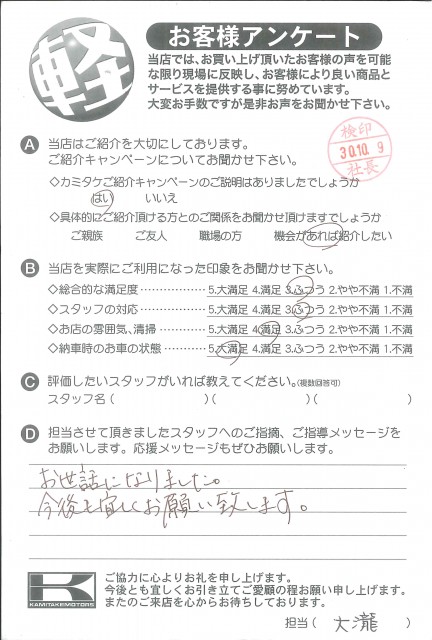 軽
お客様アンケート
当店では、お買い上げ頂いたお客様の声を可能
な限り現場に反映し、お客様により良い商品と
サービスを提供する事に努めています。
大変お手数ですが是非お声をお聞かせ下さい。
検印
30.10.9
社長
A 当店はご紹介を大切にしております。
ご紹介キャンペーンについてお聞かせ下さい。
◇カミタケご紹介キャンペーンのご説明はありましたでしょうか
はい いいえ
◇具体的にご紹介頂ける方とのご関係をお聞かせ頂けますでしょうか
ご親族 ご友人 職場の方 機会があれば紹介したい
B 当店を実際にご利用になった印象をお聞かせ下さい。
◇総合的な満足度 ················ 5.大満足 4.満足 3.ふつう 2.やや不満 1.不満
◇スタッフの対応 ················ 5.大満足 4.満足 3.ふつう 2.やや不満 1.不満
◇お店の雰囲気、清掃 ·········· 5.大満足 4.満足 3.ふつう 2.やや不満 1.不満
◇納車時のお車の状態 ·········· 5.大満足 4.満足 3.ふつう 2.やや不満 1.不満
C 評価したいスタッフがいれば教えてください。(複数回答可)
スタッフ名 ( )( )( )
D 担当させて頂きましたスタッフへのご指摘、ご指導メッセージを
お願いします。応援メッセージもぜひお願いします。
お世話になりました。
今後も宜しくお願い致します。
K
KAMITAKEMOTORS
ご協力に心よりお礼を申し上げます。
今後とも宜しくお引き立てご愛顧の程お願い申し上げます。
またのご来店を心からお待ちしております。
担当 ( 大瀧 )